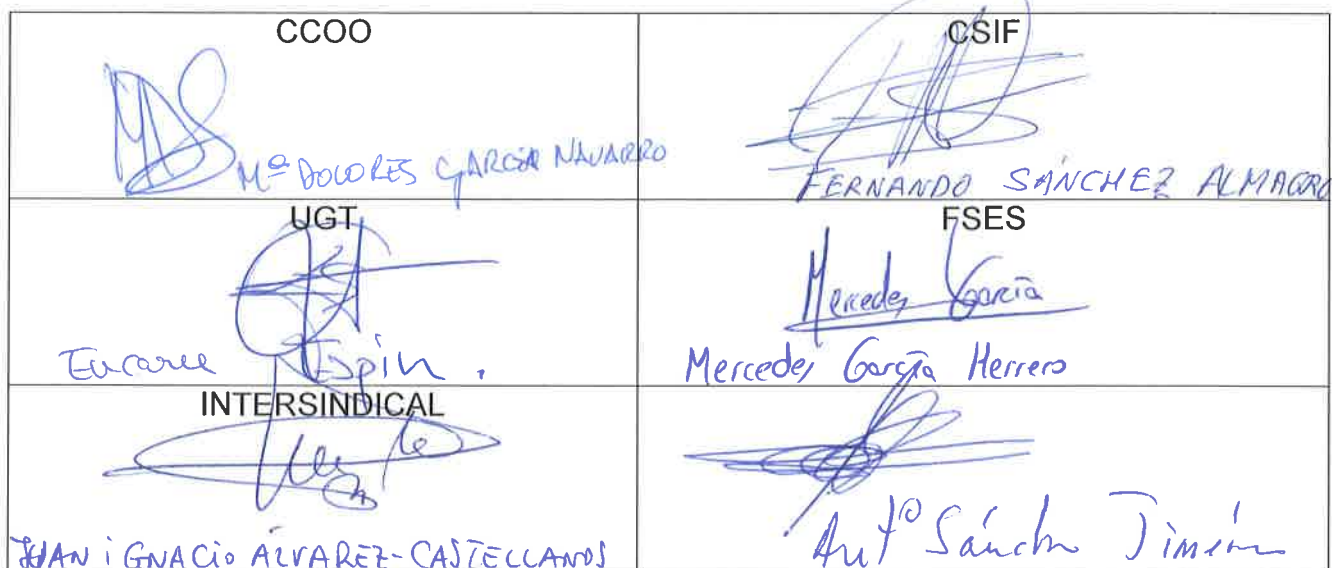 CCOO
Mª DOLORES GARCÍA NAVARRO
CSIF
FERNANDO SÁNCHEZ ALMAGRO
UGT
Espín.
FSES
Mercedes García
Mercedes García Herrero
INTERSINDICAL
JUAN iGNACiO ÁLVAREZ-CASTELLANOS
Antº Sánchez Jiménez